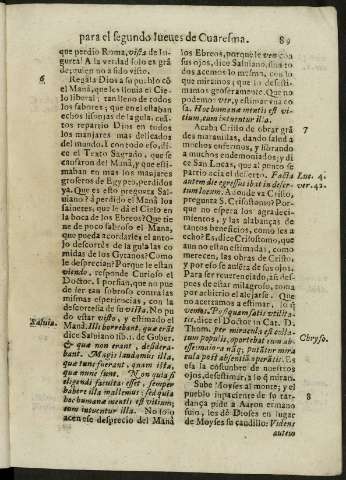 para el segundo Iueves de Cuaresma. 89
que perdio Roma, vista de Iu-
gurta? A la verdad solo es grã
de; quien no a sido visto.
6. Regala Dios a su pueblo cõ
el Maná, que les llouia el Cie-
lo liberal; tan lleno de todos
los sabores; que en el estaban
echos lisonjas de la gula, cuã-
tos repartio Dios en todos
los manjares mas delicados
del mundo. I con todo eso, di-
ce el Texto Sagrado, que se
cansaron del Maná, y que esti-
maban en mas los manjares
groseros de Egypto, perdidos
ya. Que es esto pregunta Sal-
uiano? á perdido el Maná los
saineres, que le dá el Cielo en
la boca de los Ebreos? Que tie
ne de poco sabroso el Maná,
que pueda acordarles el anto-
jo descortès de la gula las co
midas de los Gytanos? Como
le desprecian? Porque le están
viendo, responde Curioso el
Doctor. I porfian, que no pue
de ser tan sobroso contra las
mismas esperiencias, con la
descortesia de su vista. No pu
do estar visto, y estimado el
Saluia. Maná. Illi horrebant, quæ erãt
dice Saluiano lib. de Guber.
& quæ non erant, desidera-
bant. Magis laudamus illa,
quæ tunc fuerant, quam ista,
quæ nunc sunt. Non quia si
eligendi facultas esset, semper
habere illa mallemus: sed quia
hoc humanæ mentis est vitium;
cum intuentur illa. No solo
acen ese desprecio del Maná
los Ebreos, porque le ven con
sus ojos, dice Saluiano, sino to
dos acemos lo mismo, con lo
que miramos; que hombres no
somos groseramente? Que no
podemos ver, y estimar vna co
sa. Hoc humanæ mentis est vi-
tium, cum intuentur illa.
Acaba Cristo de obrar grã 7
des marauillas, dando salud a
muchos enfermos, y librando
a muchos endemoniados; y di
ce San Lucas, que al punto se
partio acia el desierto. Facta Luc. 4.
autem die egressus ibat in deser- ver. 42.
tum locum. A donde va Cristo,
pregunta S. Crisostomo? Por-
que no espera los agradeci-
mientos, y las alabanças de
tantos beneficios, como les a
echo? Es, dice Crisostomo, que
aun no estan estimadas, como
merecen, las obras de Cristo,
y por eso se ausenta de sus ojos.
Para ser reuerenciado, aú des-
pues de estar milagroso, toma
por arbitrio el alejarse. Que
no acertamos a estimar, lo q̃
vemos. Post quam satis vtilita-
tis; dice el Doctor in Cat. D.
Thom. per miracula est colla- Chryso.
tum populis, oportebat eum ab-
esse: maiora nãq; putãtur mira
cula post absentiã operãtis. Es es
sa la costumbre de nuestros
ojos, desestimar, a lo q̃ miran.
Sube Moyses al monte; y el 8
pueblo inpaciente de su tar-
dança pide a Aaron ermano
suio, les dé Dioses en lugar
de Moyses su caudillo: Videns
autem